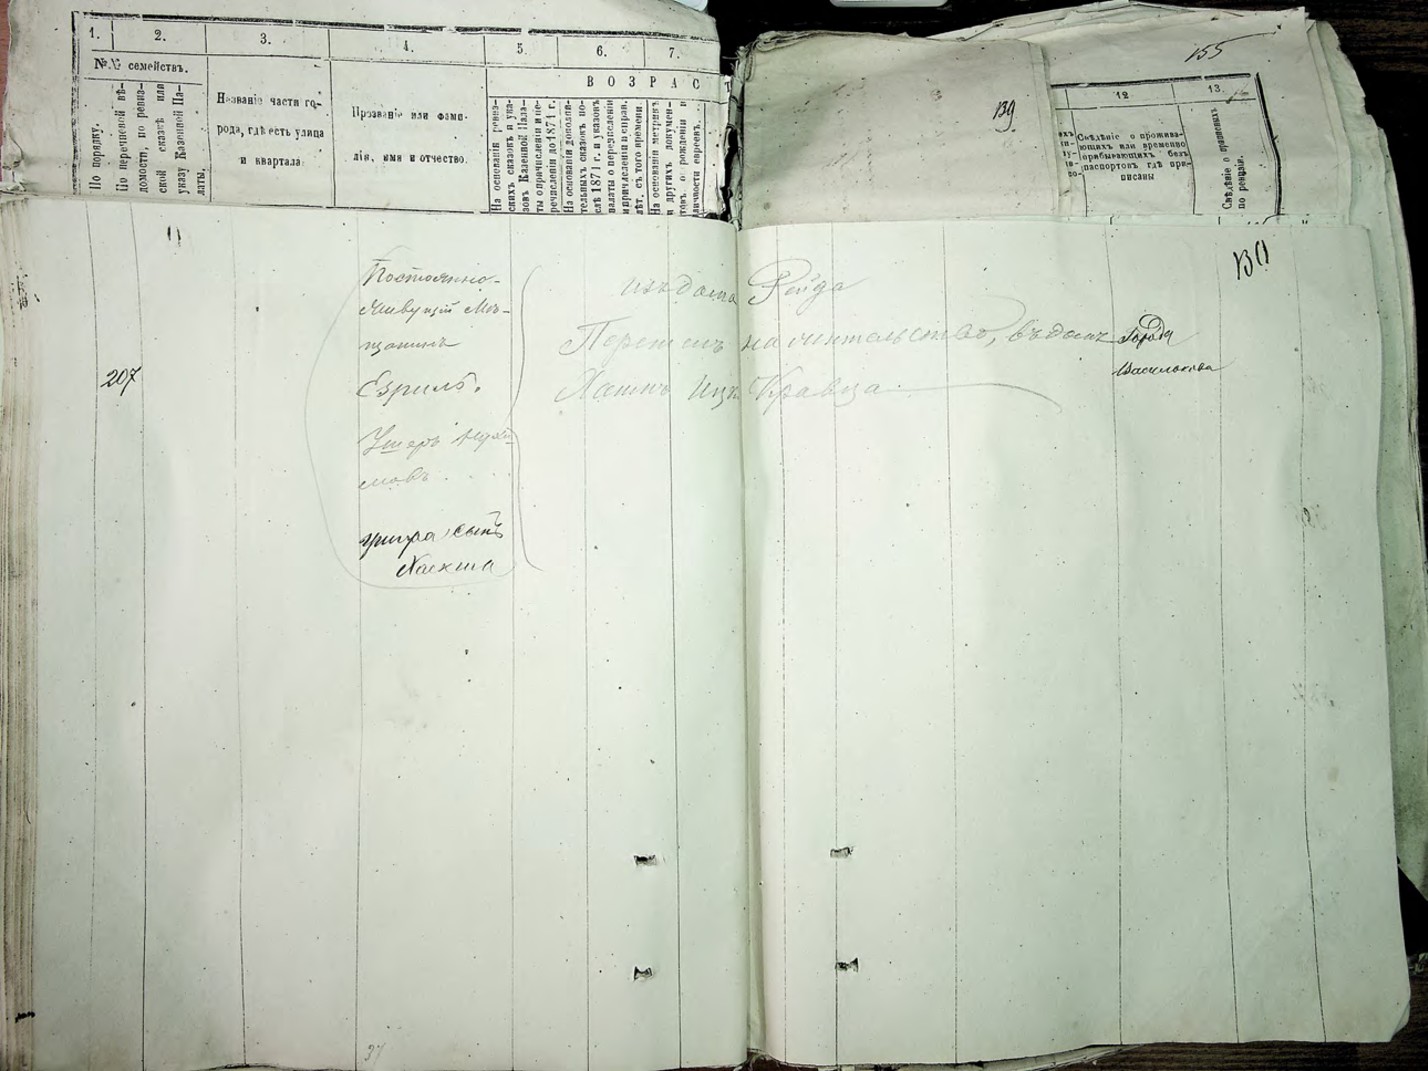 1. 2. 3. 4. 5. 6. 7.
№№ семействъ.
В О З Р А С Т
По порядку.
По перечневой вѣ-
домости, по ревиз-
ской сказкѣ или
указу Казенной Па-
латы.
Названіе части го-
рода, гдѣ есть улица
и квартала
Прозваніе или фами-
лія, имя и отчество.
На основаніи ревиз-
скихъ сказокъ и ука-
зовъ Казенной Пала-
ты о причисленіи и пе-
речисленіи до 1871 г.
На основаніи дополни-
тельныхъ сказокъ по-
слѣ 1871 г. и указовъ
палаты о перечисленіи
и причисленіи и справ.
лѣт. съ того времени.
На основаніи метрикъ
и другихъ докумен-
товъ о рожденіи и
личности евреевъ.
155
139
12 13.
Свѣдѣніе о прожива-
ющихъ или временно
прибывающихъ безъ
паспортовъ гдѣ при-
писаны
Свѣдѣніе о
по ревизіи.
130
Постоянно-
живущій Мѣ-
щанинъ
207
Езриль.
Ушеръ
мовъ
Ушера сынъ
Хаскиль
изъ дома Ройда
на учительство, въ домъ
Ицк Кравца
Города
Василькова
37